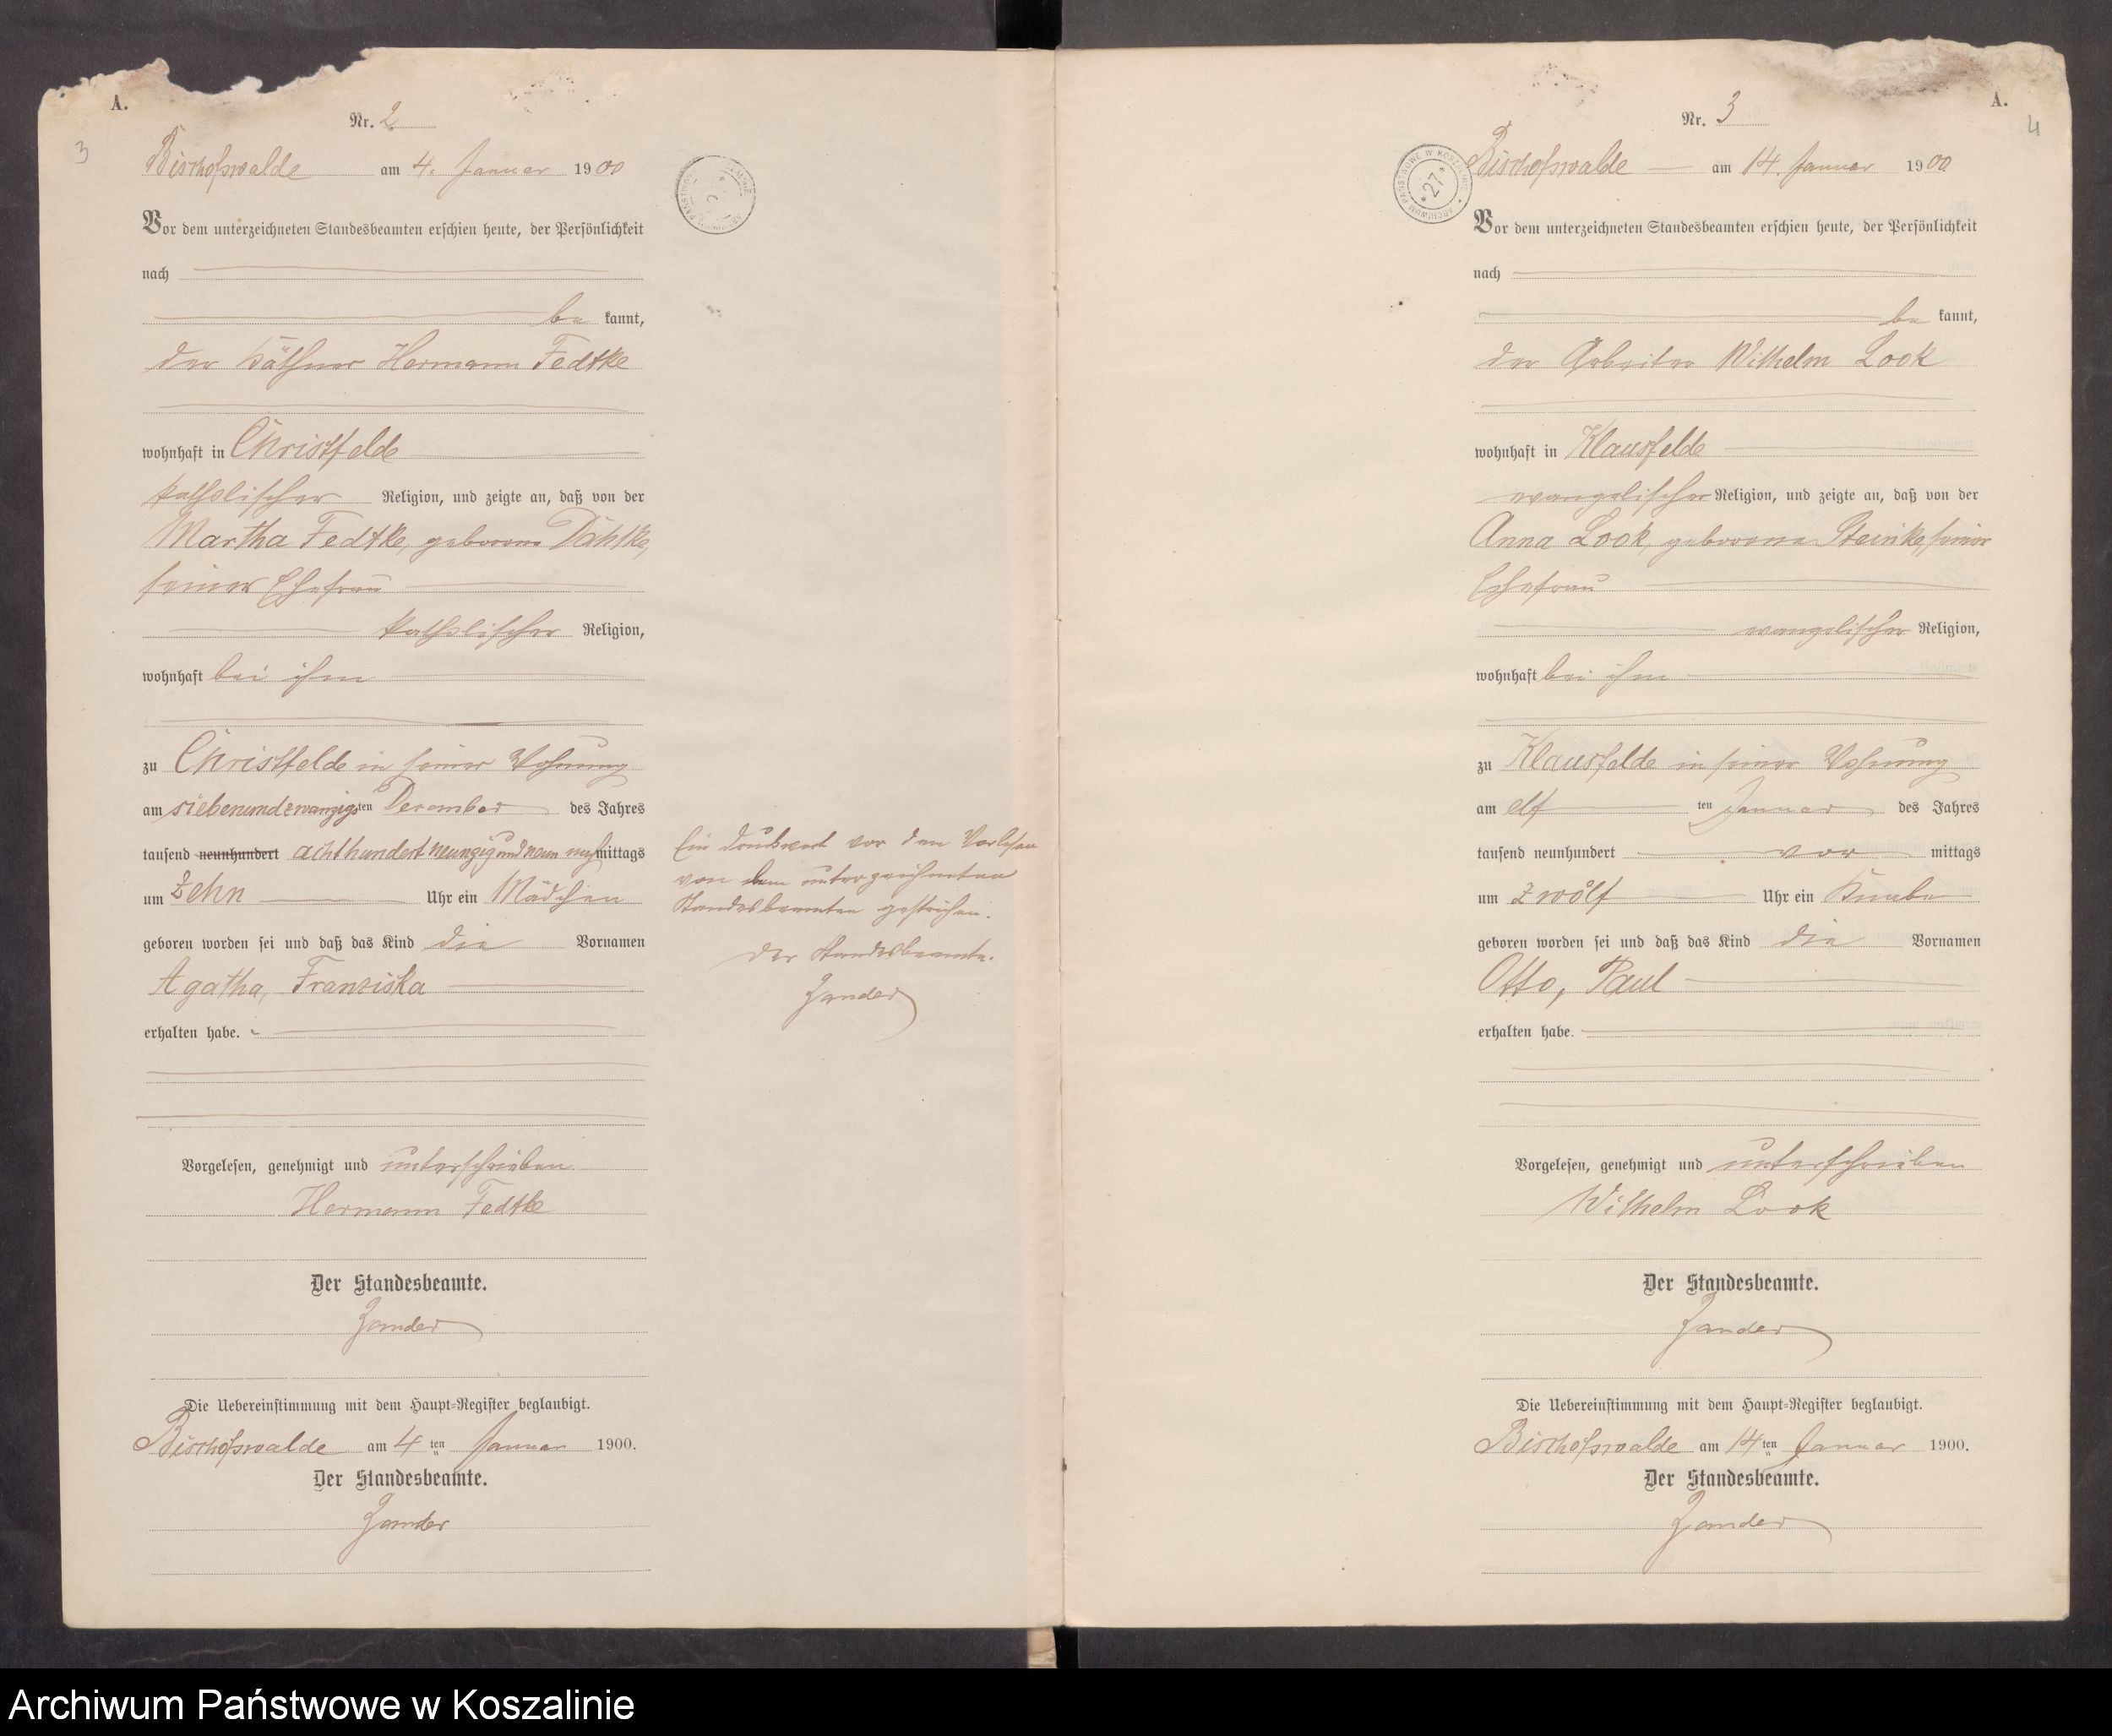 A.
3
Nr. 2
Bischofswalde am 4. Januar 1900
Vor dem unterzeichneten Standesbeamten erschien heute, der Persönlichkeit
nach
be kannt,
der Käthner Hermann Fedtke
wohnhaft in Christfelde
katholischer Religion, und zeigte an, daß von der
Martha Fedtke, geborene Dähtke,
seiner Ehefrau
katholischer Religion,
wohnhaft bei ihm
zu Christfelde in seiner Wohnung
am siebenundzwanzigsten December des Jahres
tausend neunhundert achthundert neunzig und neun nachmittags
um Zehn Uhr ein Mädchen
geboren worden sei und daß das Kind die Vornamen
Agatha, Franziska
erhalten habe.
Vorgelesen, genehmigt und unterschrieben
Hermann Fedtke
Der Standesbeamte.
Zander
Die Uebereinstimmung mit dem Haupt-Register beglaubigt.
Bischofswalde am 4ten Januar 1900.
Der Standesbeamte.
Zander
Ein Druckwort vor dem Vorlesen
von dem unterzeichneten
Standesbeamten gestrichen.
Der Standesbeamte.
Zander
A.
4
Nr. 3
ARCHIWUM PAŃSTWOWE W KOSZALINIE
* 27 *
Bischofswalde am 14. Januar 1900
Vor dem unterzeichneten Standesbeamten erschien heute, der Persönlichkeit
nach
be kannt,
der Arbeiter Wilhelm Look
wohnhaft in Klausfelde
evangelischer Religion, und zeigte an, daß von der
Anna Look, geborene Steinke, seiner
Ehefrau
evangelischer Religion,
wohnhaft bei ihm
zu Klausfelde in seiner Wohnung
am elf ten Januar des Jahres
tausend neunhundert vor mittags
um zwölf Uhr ein Knabe
geboren worden sei und daß das Kind die Vornamen
Otto, Paul
erhalten habe.
Vorgelesen, genehmigt und unterschrieben
Wilhelm Look
Der Standesbeamte.
Zander
Die Uebereinstimmung mit dem Haupt-Register beglaubigt.
Bischofswalde am 14ten Januar 1900.
Der Standesbeamte.
Zander
Archiwum Państwowe w Koszalinie